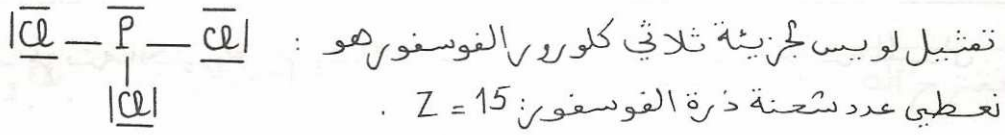 تمثيل لويس لجزيئة ثلاثي كلورور الفوسفور هو :
|Cl — P — Cl|
|Cl|
نعطي عدد شحنة ذرة الفوسفور: Z = 15 .